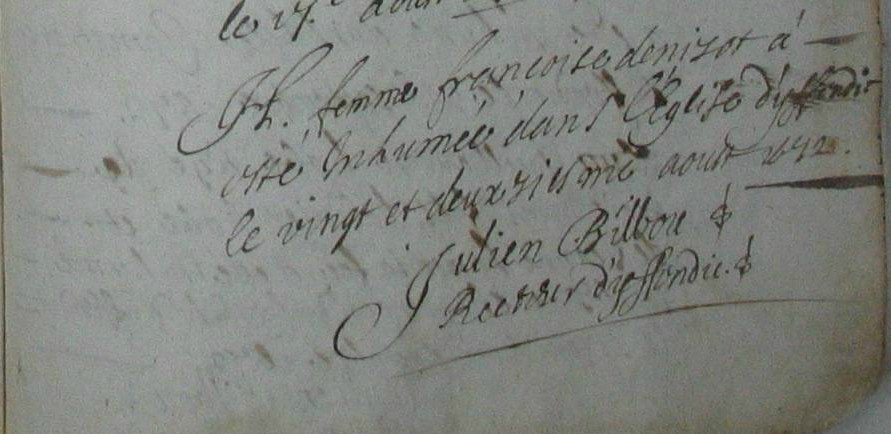 le 17.e aoust
H. femme françoise denizot á
esté Inhumée dans l'Eglise d'yffendic
le vingt et deuxziesme aoust
Julien Billou
Recteur d'yffendic.